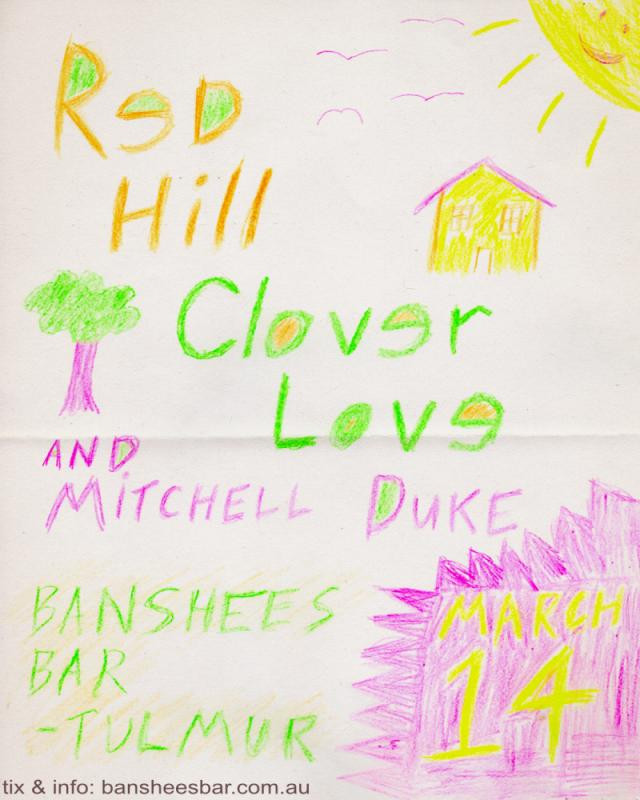 Red
Hill
Clover
Love
AND
MiTCHELL DUKE
BANSHEES
BAR
-TULMUR
MARCH
14
tix & info: bansheesbar.com.au